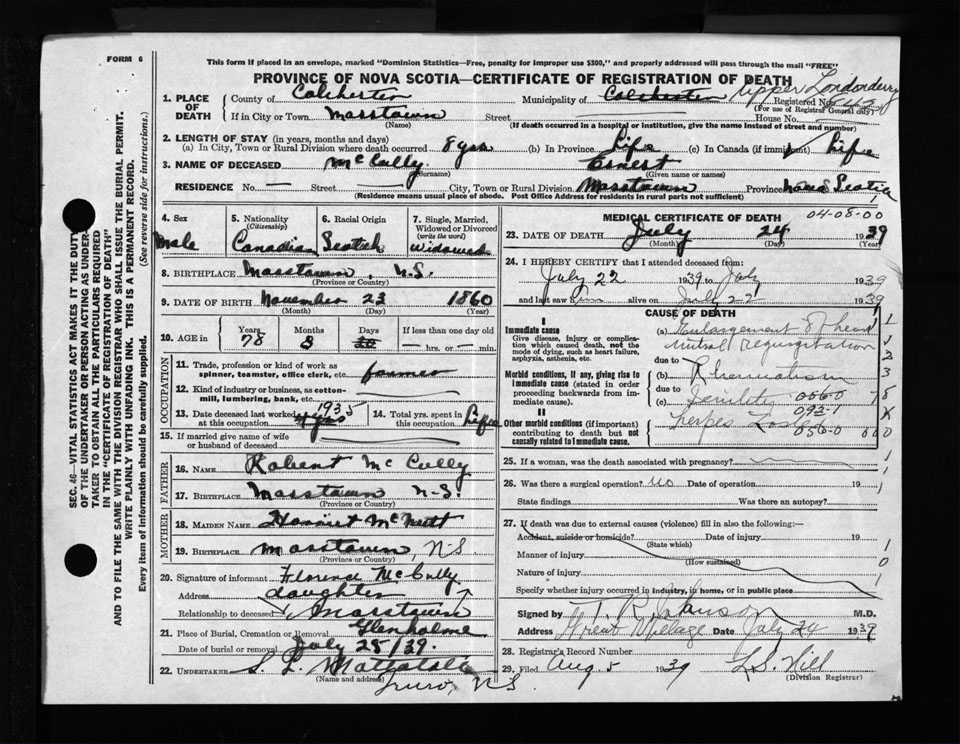 FORM 6
This form if placed in an envelope, marked "Dominion Statistics—Free, penalty for improper use $300," and properly addressed will pass through the mail "FREE"
PROVINCE OF NOVA SCOTIA—CERTIFICATE OF REGISTRATION OF DEATH
1. PLACE OF DEATH
County of Colchester
Municipality of Colchester Upper Londonderry
Registered No.
(For use of Registrar General only)
If in City or Town Masstown
(Name)
Street
House No.
(If death occurred in a hospital or institution, give the name instead of street and number)
2. LENGTH OF STAY (in years, months and days)
(a) In City, Town or Rural Division where death occurred 8 yrs (b) In Province Life (c) In Canada (if immigrant) Life
3. NAME OF DECEASED McCully Ernest
(Surname) (Given name or names)
RESIDENCE No. — Street — City, Town or Rural Division Masstown Province Nova Scotia
(Residence means usual place of abode. Post Office Address for residents in rural parts not sufficient)
4. Sex
Male
5. Nationality
(Citizenship)
Canadian
6. Racial Origin
Scotch
7. Single, Married, Widowed or Divorced
(write the word)
Widowed
8. BIRTHPLACE Masstown, N.S.
(Province or Country)
9. DATE OF BIRTH November 23 1860
(Month) (Day) (Year)
10. AGE in
Years 78
Months 8
Days
If less than one day
— hrs. or — min.
OCCUPATION
11. Trade, profession or kind of work as spinner, teamster, office clerk, etc. farmer
12. Kind of industry or business, as cotton-mill, lumbering, bank, etc.
13. Date deceased last worked at this occupation 1935
14. Total yrs. spent in this occupation Life
15. If married give name of wife or husband of deceased
FATHER
16. NAME Robert McCully
17. BIRTHPLACE Masstown N-S.
(Province or Country)
MOTHER
18. MAIDEN NAME Harriet McNutt
19. BIRTHPLACE Masstown, N-S
(Province or Country)
20. Signature of informant Florence McCully
Address
Relationship to deceased daughter
Masstown
21. Place of Burial, Cremation or Removal Glenholme
Date of burial or removal July 25/39.
22. UNDERTAKER
(Name and address)
Truro, N.S.
MEDICAL CERTIFICATE OF DEATH
04-08-00
23. DATE OF DEATH July 24 1939
(Month) (Day) (Year)
24. I HEREBY CERTIFY that I attended deceased from:
July 22 1939 to July 1939
and last saw him alive on July 22 1939
CAUSE OF DEATH
I
Immediate cause
Give disease, injury or complication which caused death, not the mode of dying, such as heart failure, asphyxia, asthenia, etc.
(a) Enlargement of heart
mitral regurgitation
due to
Morbid conditions, if any, giving rise to immediate cause (stated in order proceeding backwards from immediate cause).
(b) Rheumatism
due to
(c) Senility
093-1
II
Other morbid conditions (if important) contributing to death but not causally related to immediate cause.
Herpes Zoster
25. If a woman, was the death associated with pregnancy?
26. Was there a surgical operation? no Date of operation 19
State findings Was there an autopsy?
27. If death was due to external causes (violence) fill in also the following:—
Accident, suicide or homicide? Date of injury 19
(State which)
Manner of injury
(How sustained)
Nature of injury
Specify whether injury occurred in industry, in home, or in public place
Signed by T. R. Johnson M.D.
Address Great Village Date July 24 1939
28. Registrar's Record Number
29. Filed Aug. 5 1939 L.S. Hill
(Division Registrar)
SEC. 46—VITAL STATISTICS ACT MAKES IT THE DUTY OF THE UNDERTAKER OR PERSON ACTING AS UNDERTAKER TO OBTAIN ALL THE PARTICULARS REQUIRED IN THE "CERTIFICATE OF REGISTRATION OF DEATH" AND TO FILE THE SAME WITH THE DIVISION REGISTRAR WHO SHALL ISSUE THE BURIAL PERMIT.
WRITE PLAINLY WITH UNFADING INK. THIS IS A PERMANENT RECORD.
Every item of information should be carefully supplied. (See reverse side for instructions.)